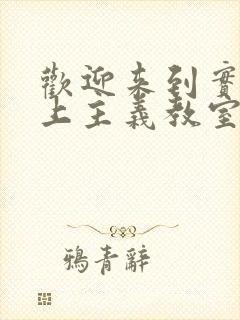 歡迎来到實
上主義教室
鴉青辭